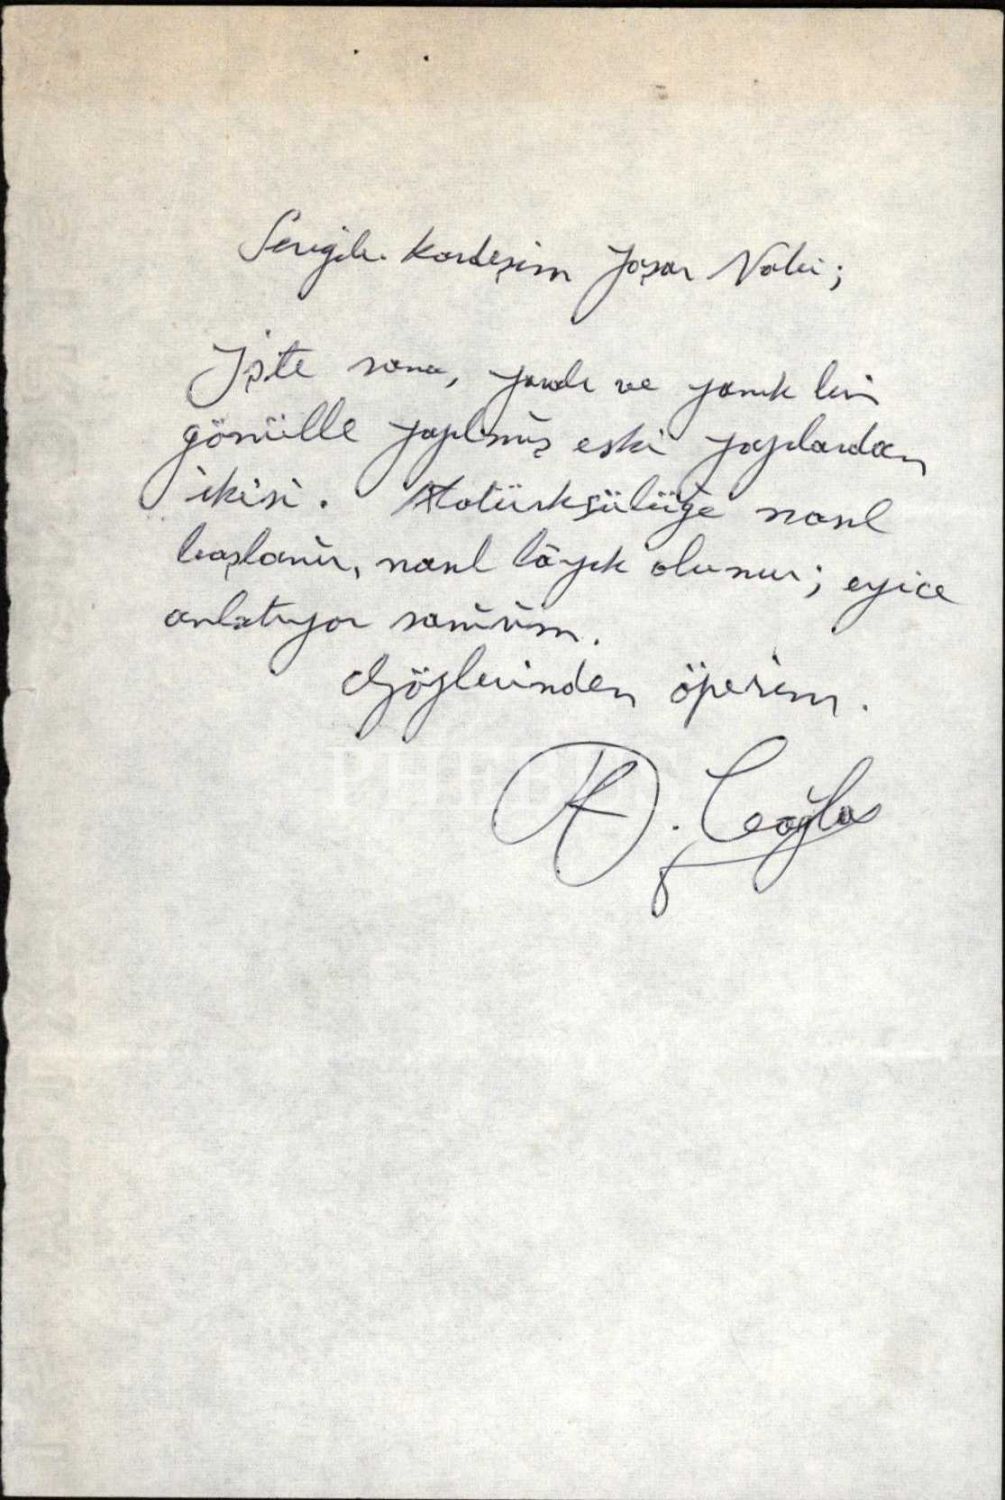 Sevgili Kardeşim Yaşar Nabi;
İşte sana, yaralı ve yanık bir
gönülle yapılmış eski yapılardan
ikisi. Atatürkçülüğe nasıl
başlanır, nasıl lâyık olunur; eyice
anlatıyor sanırım.
Gözlerinden öperim.
B. K. Çağlar